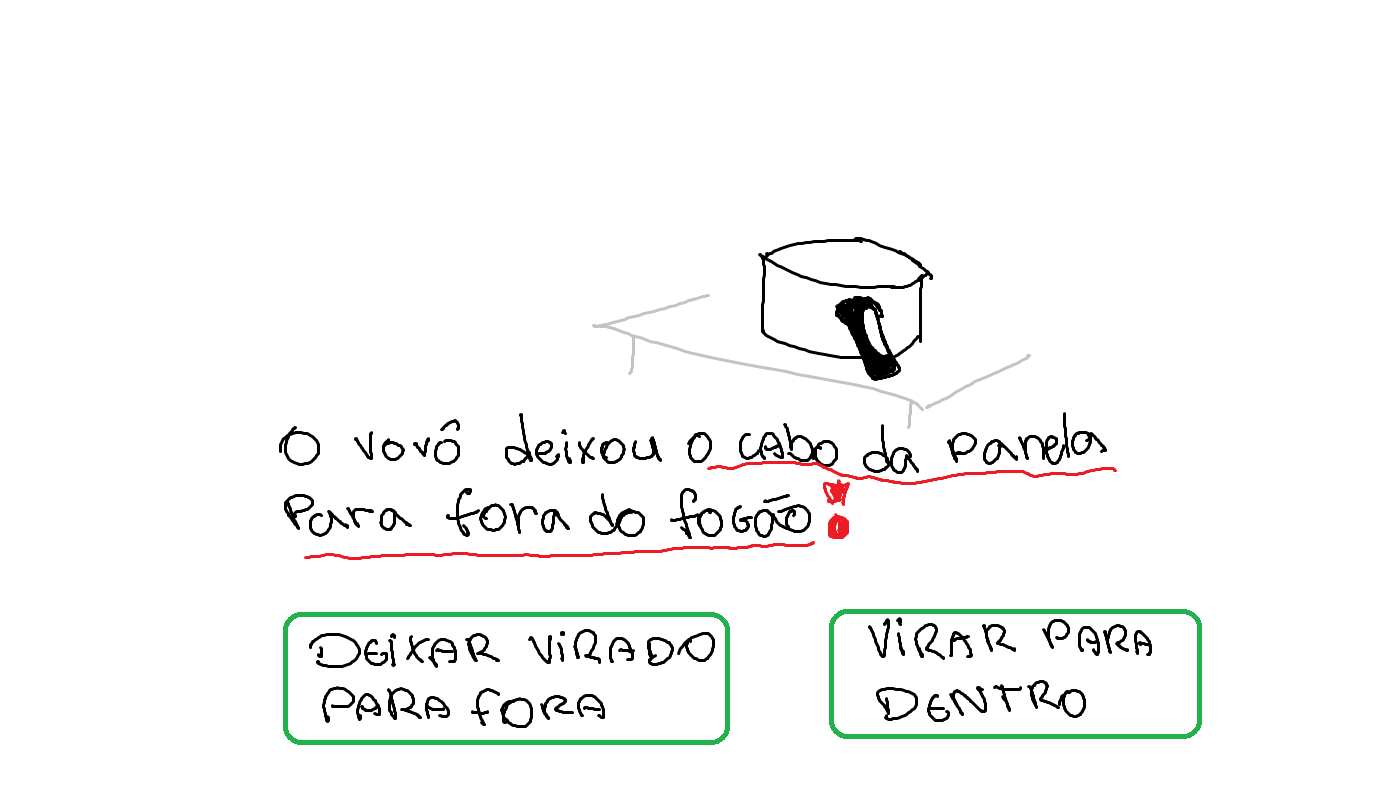 O vovô deixou o cabo da panela
para fora do fogão!
DEIXAR VIRADO
PARA FORA
VIRAR PARA
DENTRO